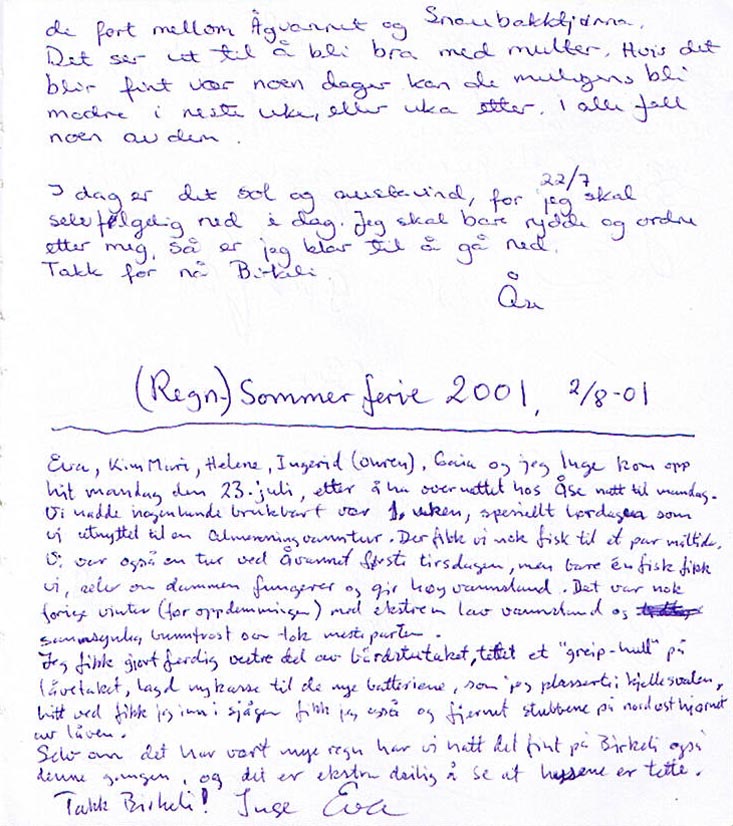 de fort mellom Ågvannet og Snaubakktjønna.
Det ser ut til å bli bra med multer. Hvis det
blir fint vær noen dager kan de muligens bli
modne i neste uke, eller uka etter. i alle fall
noen av dem.
I dag er det sol og austavind, for jeg skal
22/7
selvfølgelig ned i dag. Jeg skal bare rydde og ordne
etter meg, så er jeg klar til å gå ned.
Takk for nå Birkeli.
Åse
(Regn-) Sommerferie 2001, 2/8-01
Eva, Kim Mari, Helene, Ingerid (Ouren), Gaia og jeg Inge kom opp
hit mandag den 23. juli, etter å ha overnattet hos Åse natt til mandag.
Vi hadde nogenlunde brukbart vær 1. uken, spesiellt lørdagen som
vi utnyttet til en Almenningvanntur. Der fikk vi nok fisk til et par måltider.
Vi var også en tur ved Åvannet første tirsdagen, men bare én fisk fikk
vi, selv om dammen fungerer og gir høy vannstand. Det var nok
forige vinter (før oppdemmingen) med ekstrem lav vannstand og
sannsynlig bunnfrost som tok mesteparten.
Jeg fikk gjort ferdig vestre del av bårdstutaket, tettet et "greip-hull" på
låvetaket, lagd ny kasse til de nye batteriene, som jeg plasserte i kjellersvalen,
litt ved fikk jeg inn i sjågen fikk jeg også og fjernet stubbene på nordøst hjørnet
av låven.
Selv om det har vært mye regn har vi hatt det fint på Birkeli også
denne gangen, og det er ekstra deilig å se at husene er tette.
Takk Birkeli! Inge Eva